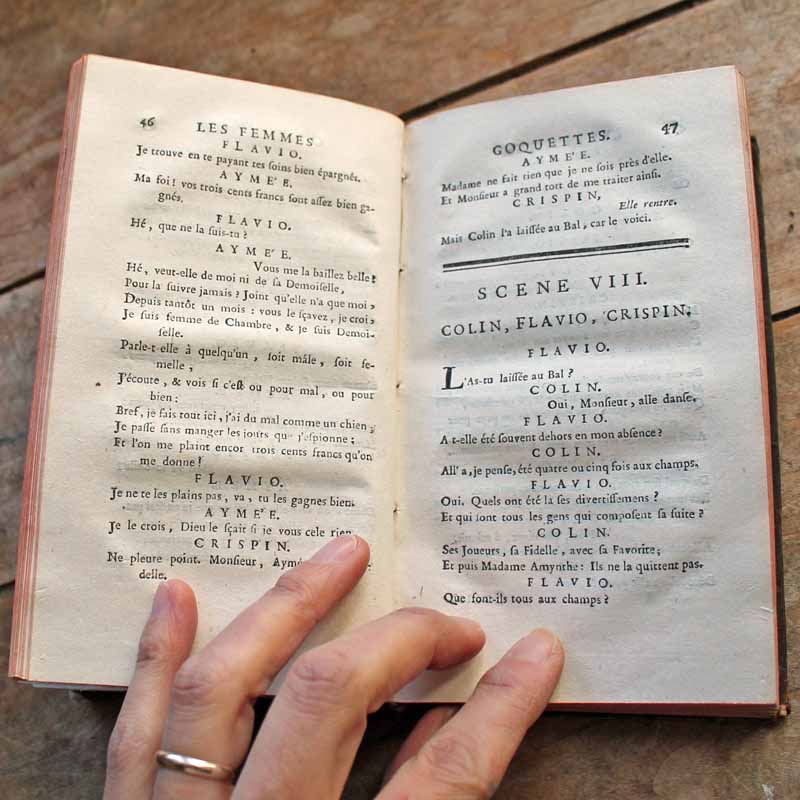 46
LES FEMMES
FLAVIO.
Je trouve en te payant tes soins bien épargnés.
AYME'E.
Ma foi! vos trois cents francs sont assez bien ga-
gnés.
FLAVIO.
Hé, que ne la suis-tu?
AYME'E.
Vous me la baillez belle!
Hé, veut-elle de moi ni de sa Demoiselle,
Pour la suivre jamais? Joint qu'elle n'a que moi,
Depuis tantôt un mois: vous le sçavez, je croi,
Je suis femme de Chambre, & je suis Demoi-
selle.
Parle-t-elle à quelqu'un, soit mâle, soit fe-
melle,
J'écoute, & vois si c'est ou pour mal, ou pour
bien:
Bref, je fais tout ici, j'ai du mal comme un chien;
Je passe sans manger les jours que j'espionne;
Et l'on me plaint encor trois cents francs qu'on
me donne!
FLAVIO.
Je ne te les plains pas, va, tu les gagnes bien.
AYME'E.
Je le crois, Dieu le sçait si je vous cele rien.
CRISPIN.
Ne pleure point. Monsieur, Aymé
delle.
47
COQUETTES.
AYME'E.
Madame ne fait rien que je ne sois près d'elle.
Et Monsieur a grand tort de me traiter ainsi.
CRISPIN,
Elle rentre.
Mais Colin l'a laissée au Bal, car le voici.
SCENE VIII.
COLIN, FLAVIO, CRISPIN.
FLAVIO.
L'As-tu laissée au Bal?
COLIN.
Oui, Monsieur, alle danse.
FLAVIO.
A t-elle été souvent dehors en mon absence?
COLIN.
All' a, je pense, été quatre ou cinq fois aux champs.
FLAVIO.
Oui. Quels ont été là ses divertissemens?
Et qui sont tous les gens qui composent sa suite?
COLIN.
Ses Joueurs, sa Fidelle, avec sa Favorite;
Et puis Madame Amynthe: Ils ne la quittent pas.
FLAVIO.
Que font-ils tous aux champs?